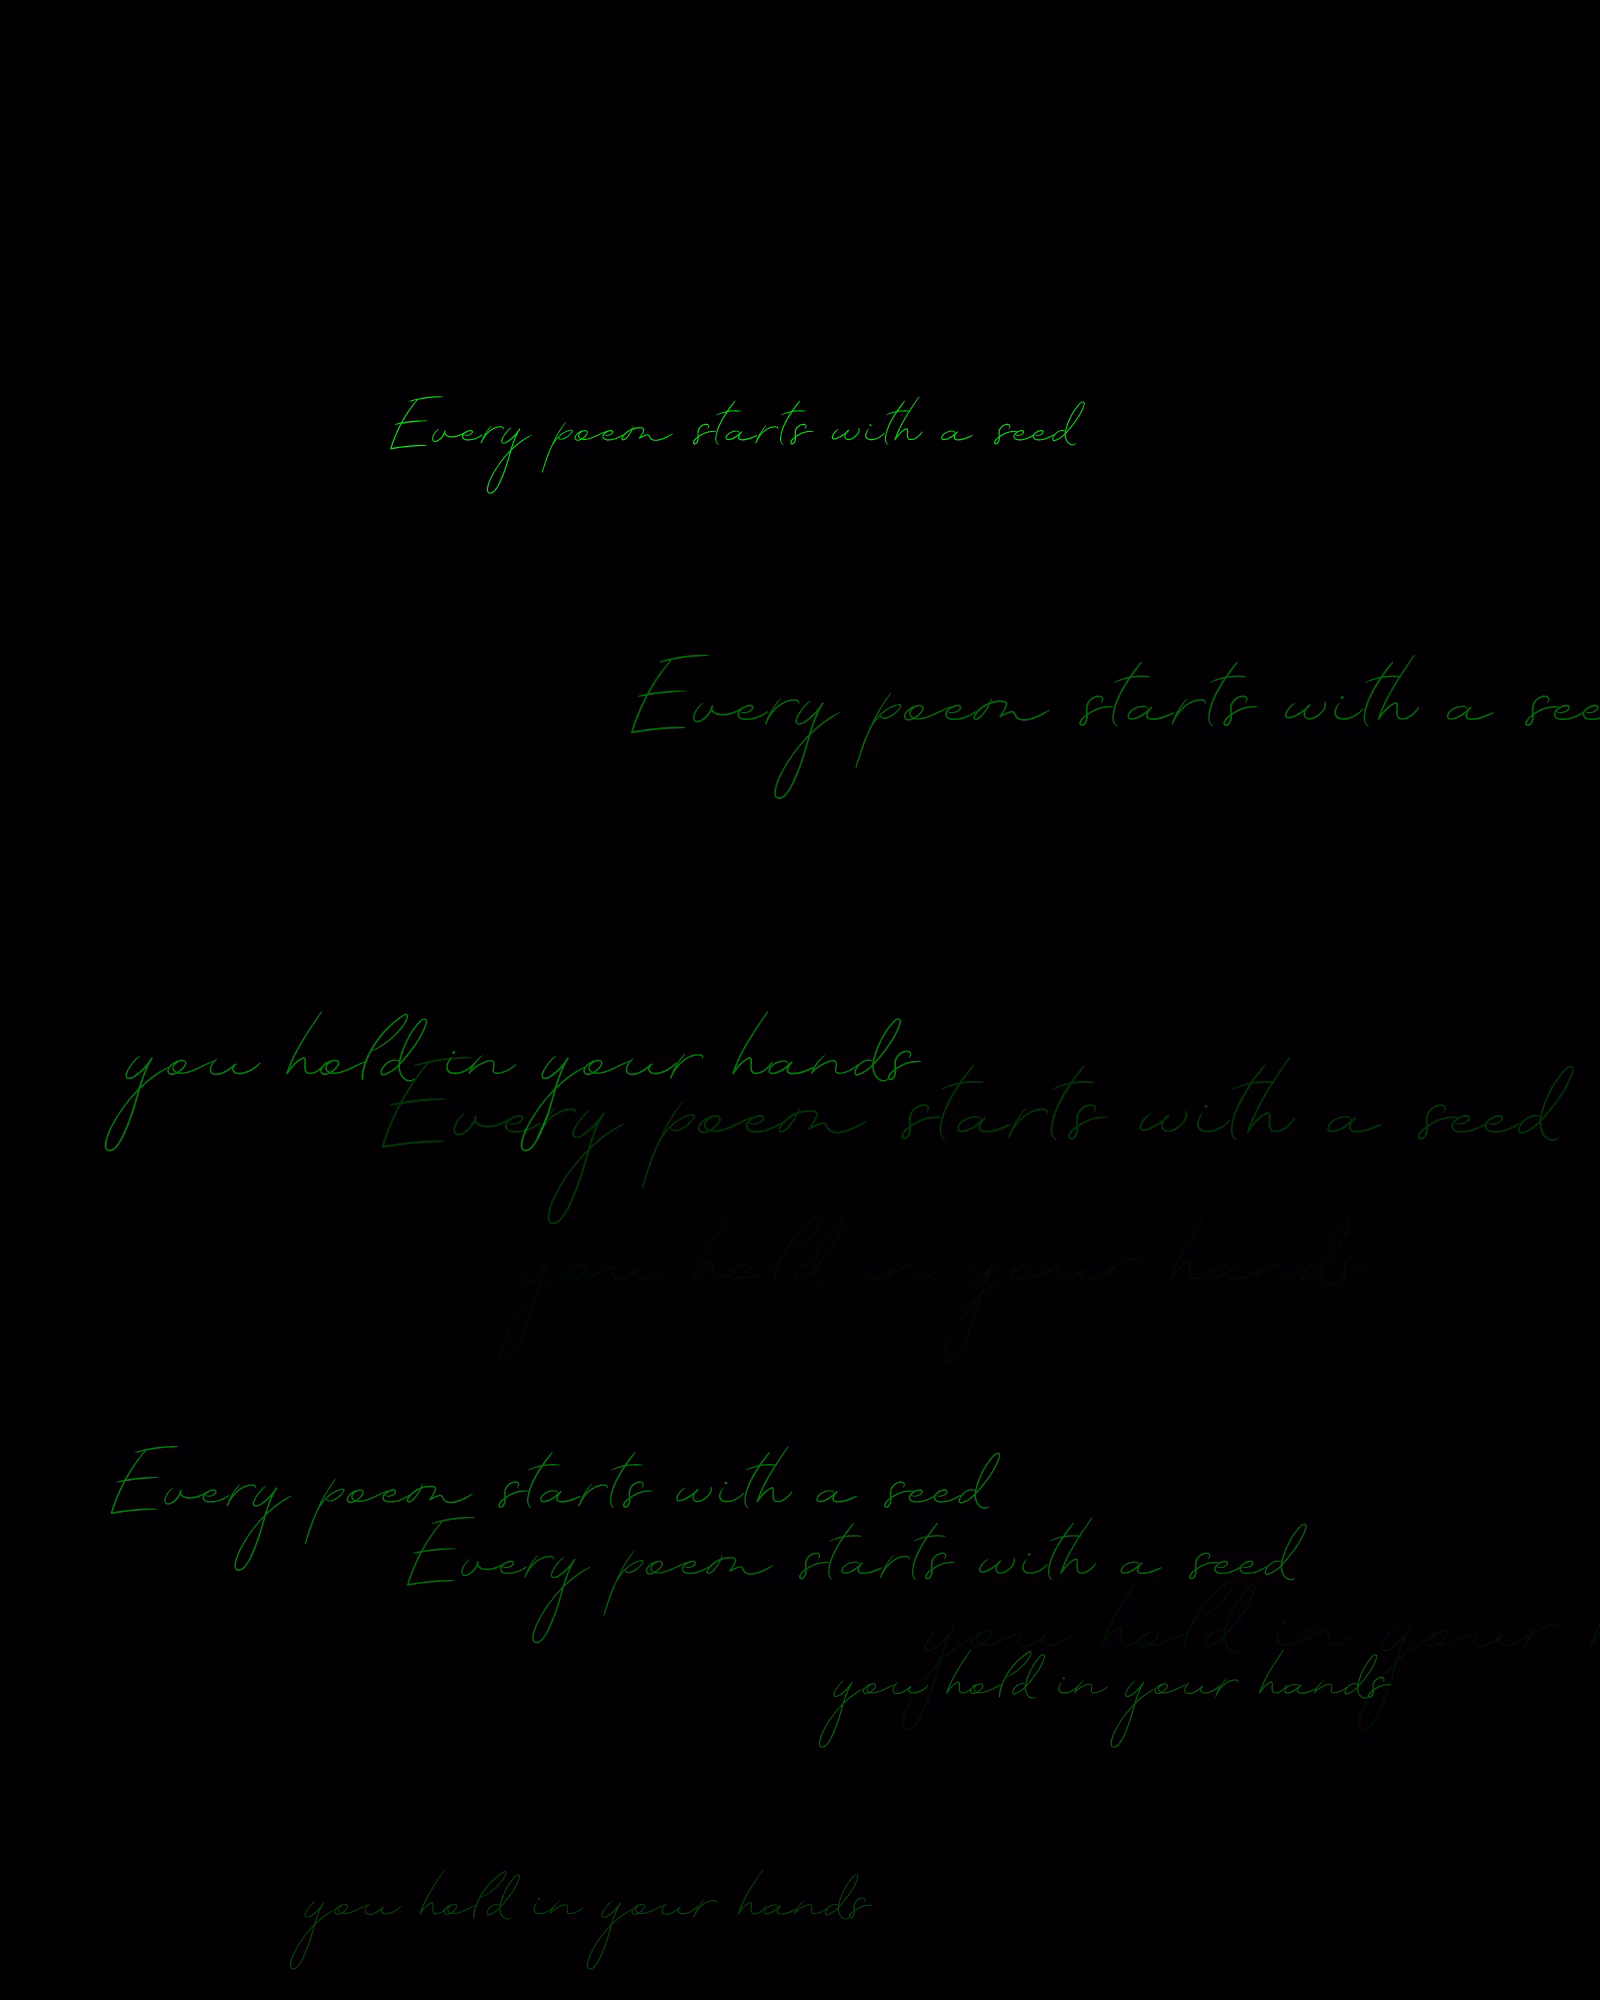 Every poem starts with a seed
Every poem starts with a see
you hold in your hands
Every poem starts with a seed
you hold in your hands
Every poem starts with a seed
Every poem starts with a seed
you hold in your
you hold in your hands
you hold in your hands